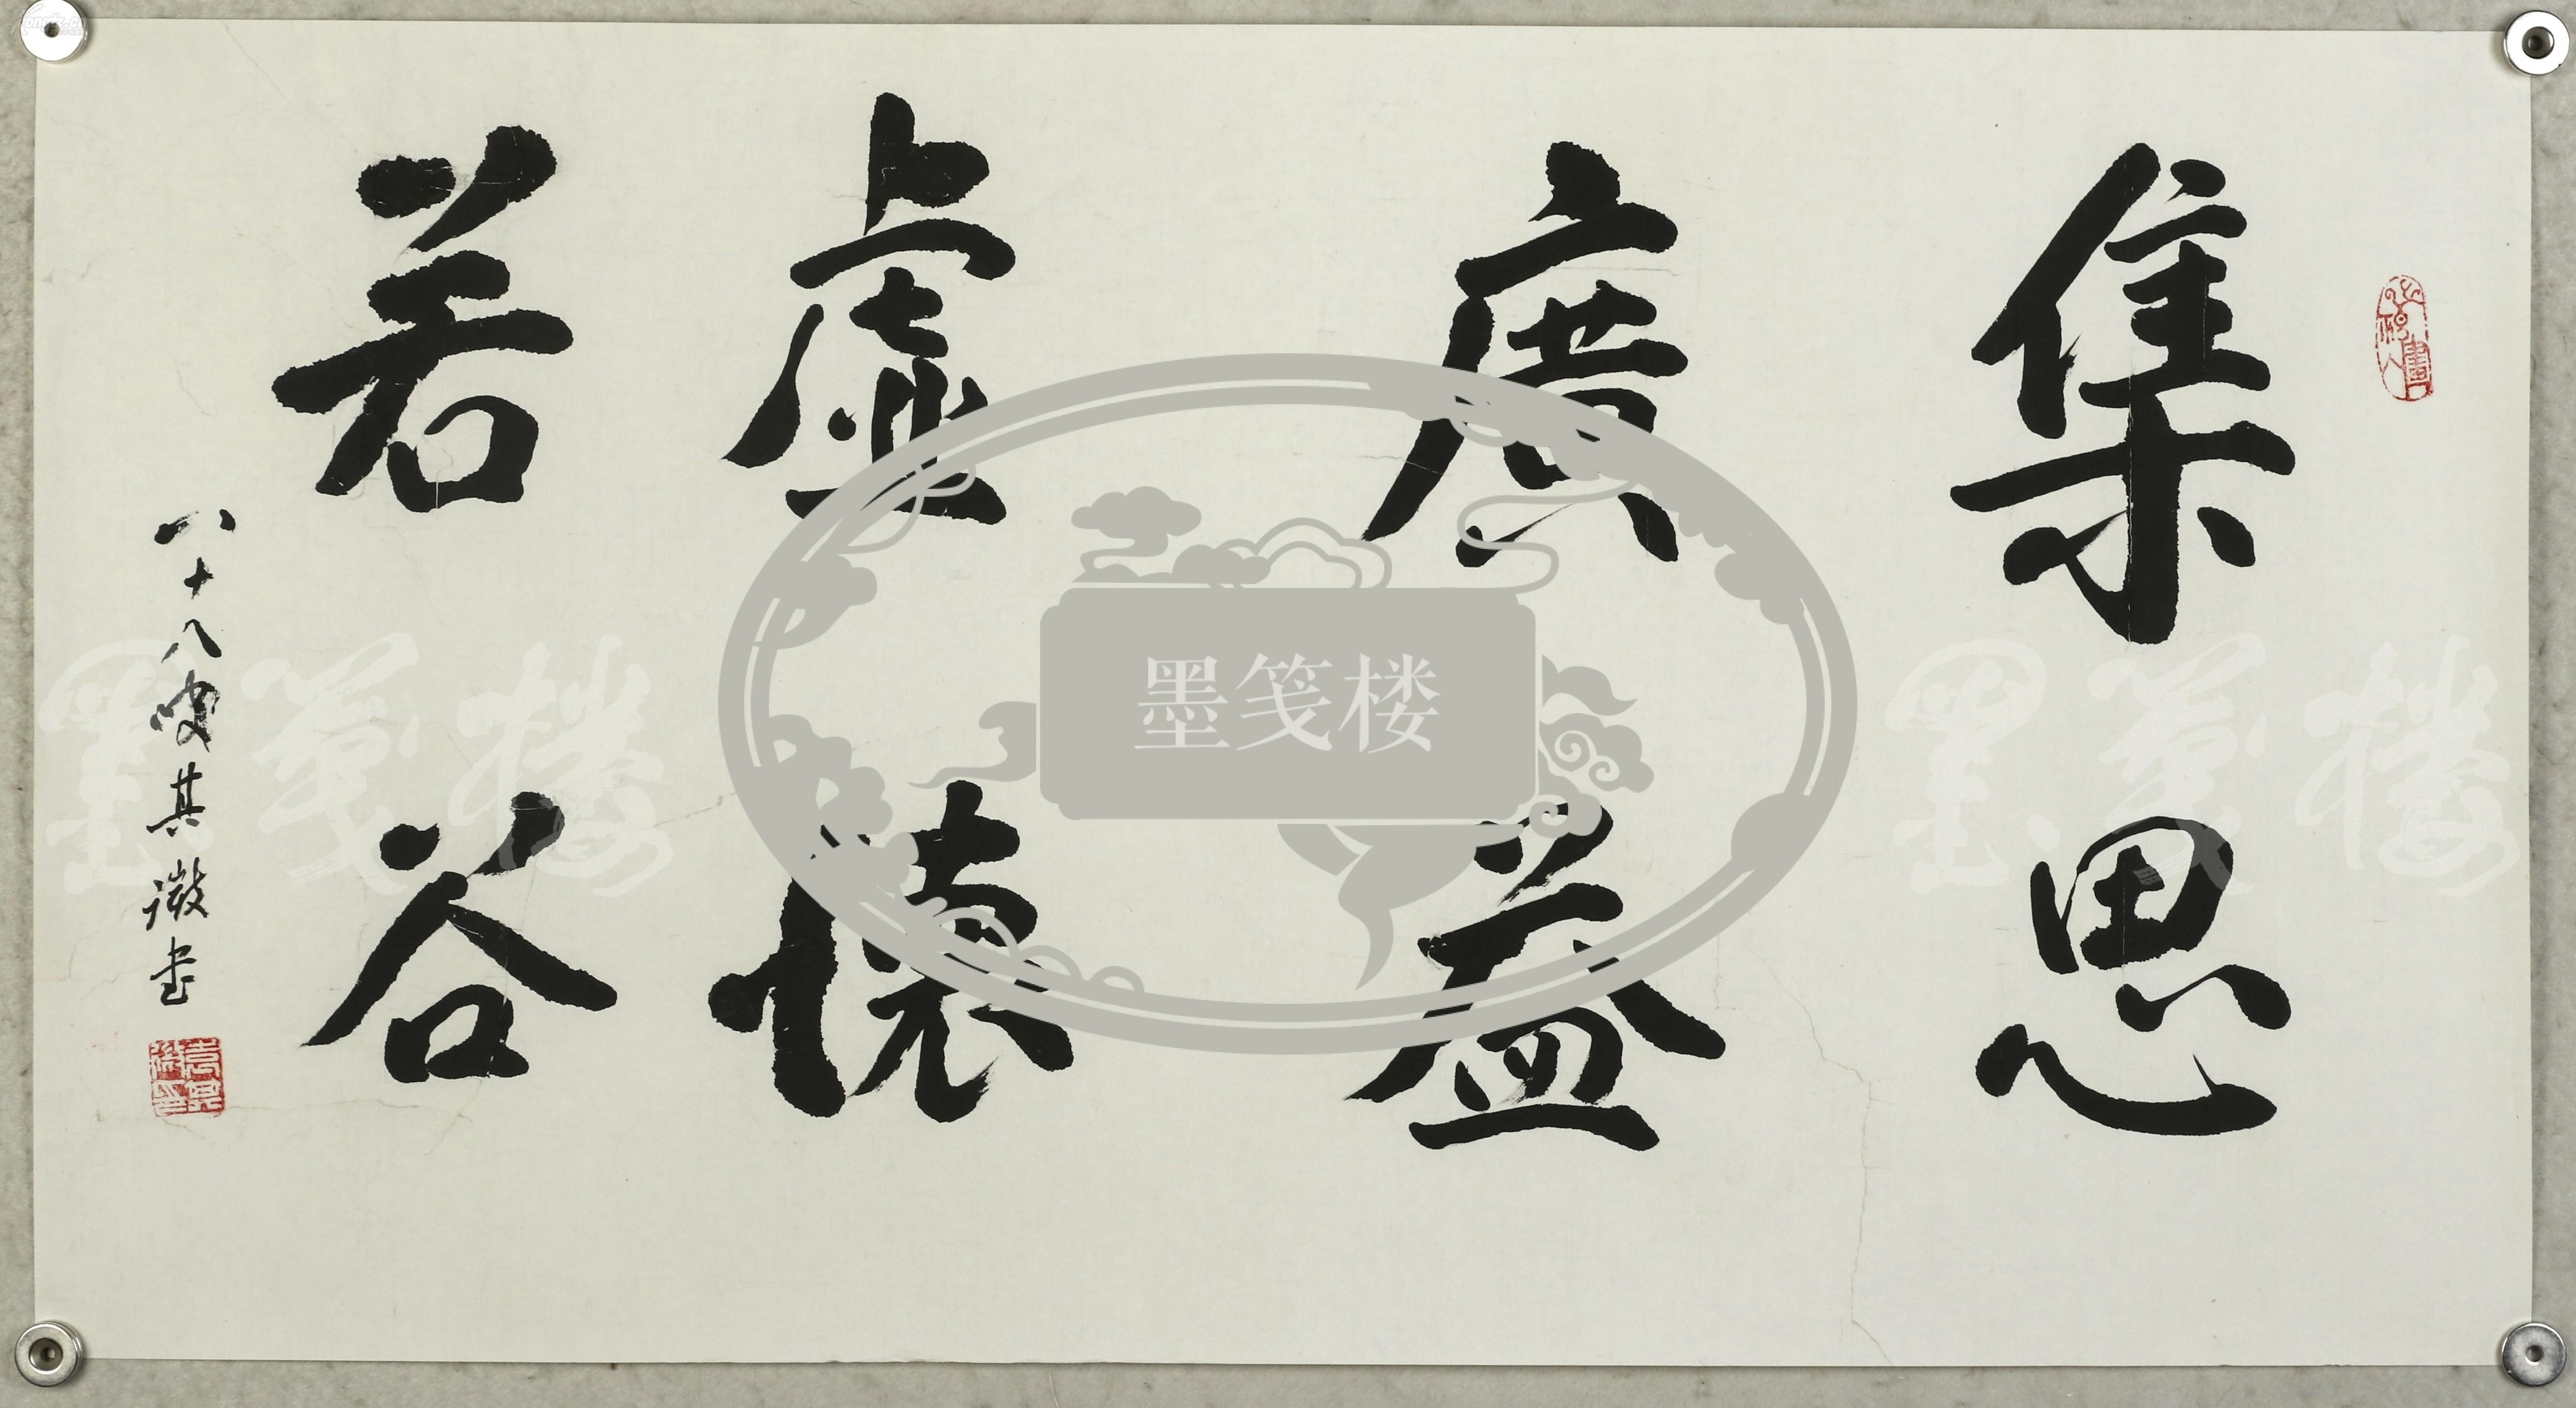 集思
廣益
虛懷
若谷
八十八叟其澂書
墨笺楼
墨笺楼
墨笺楼